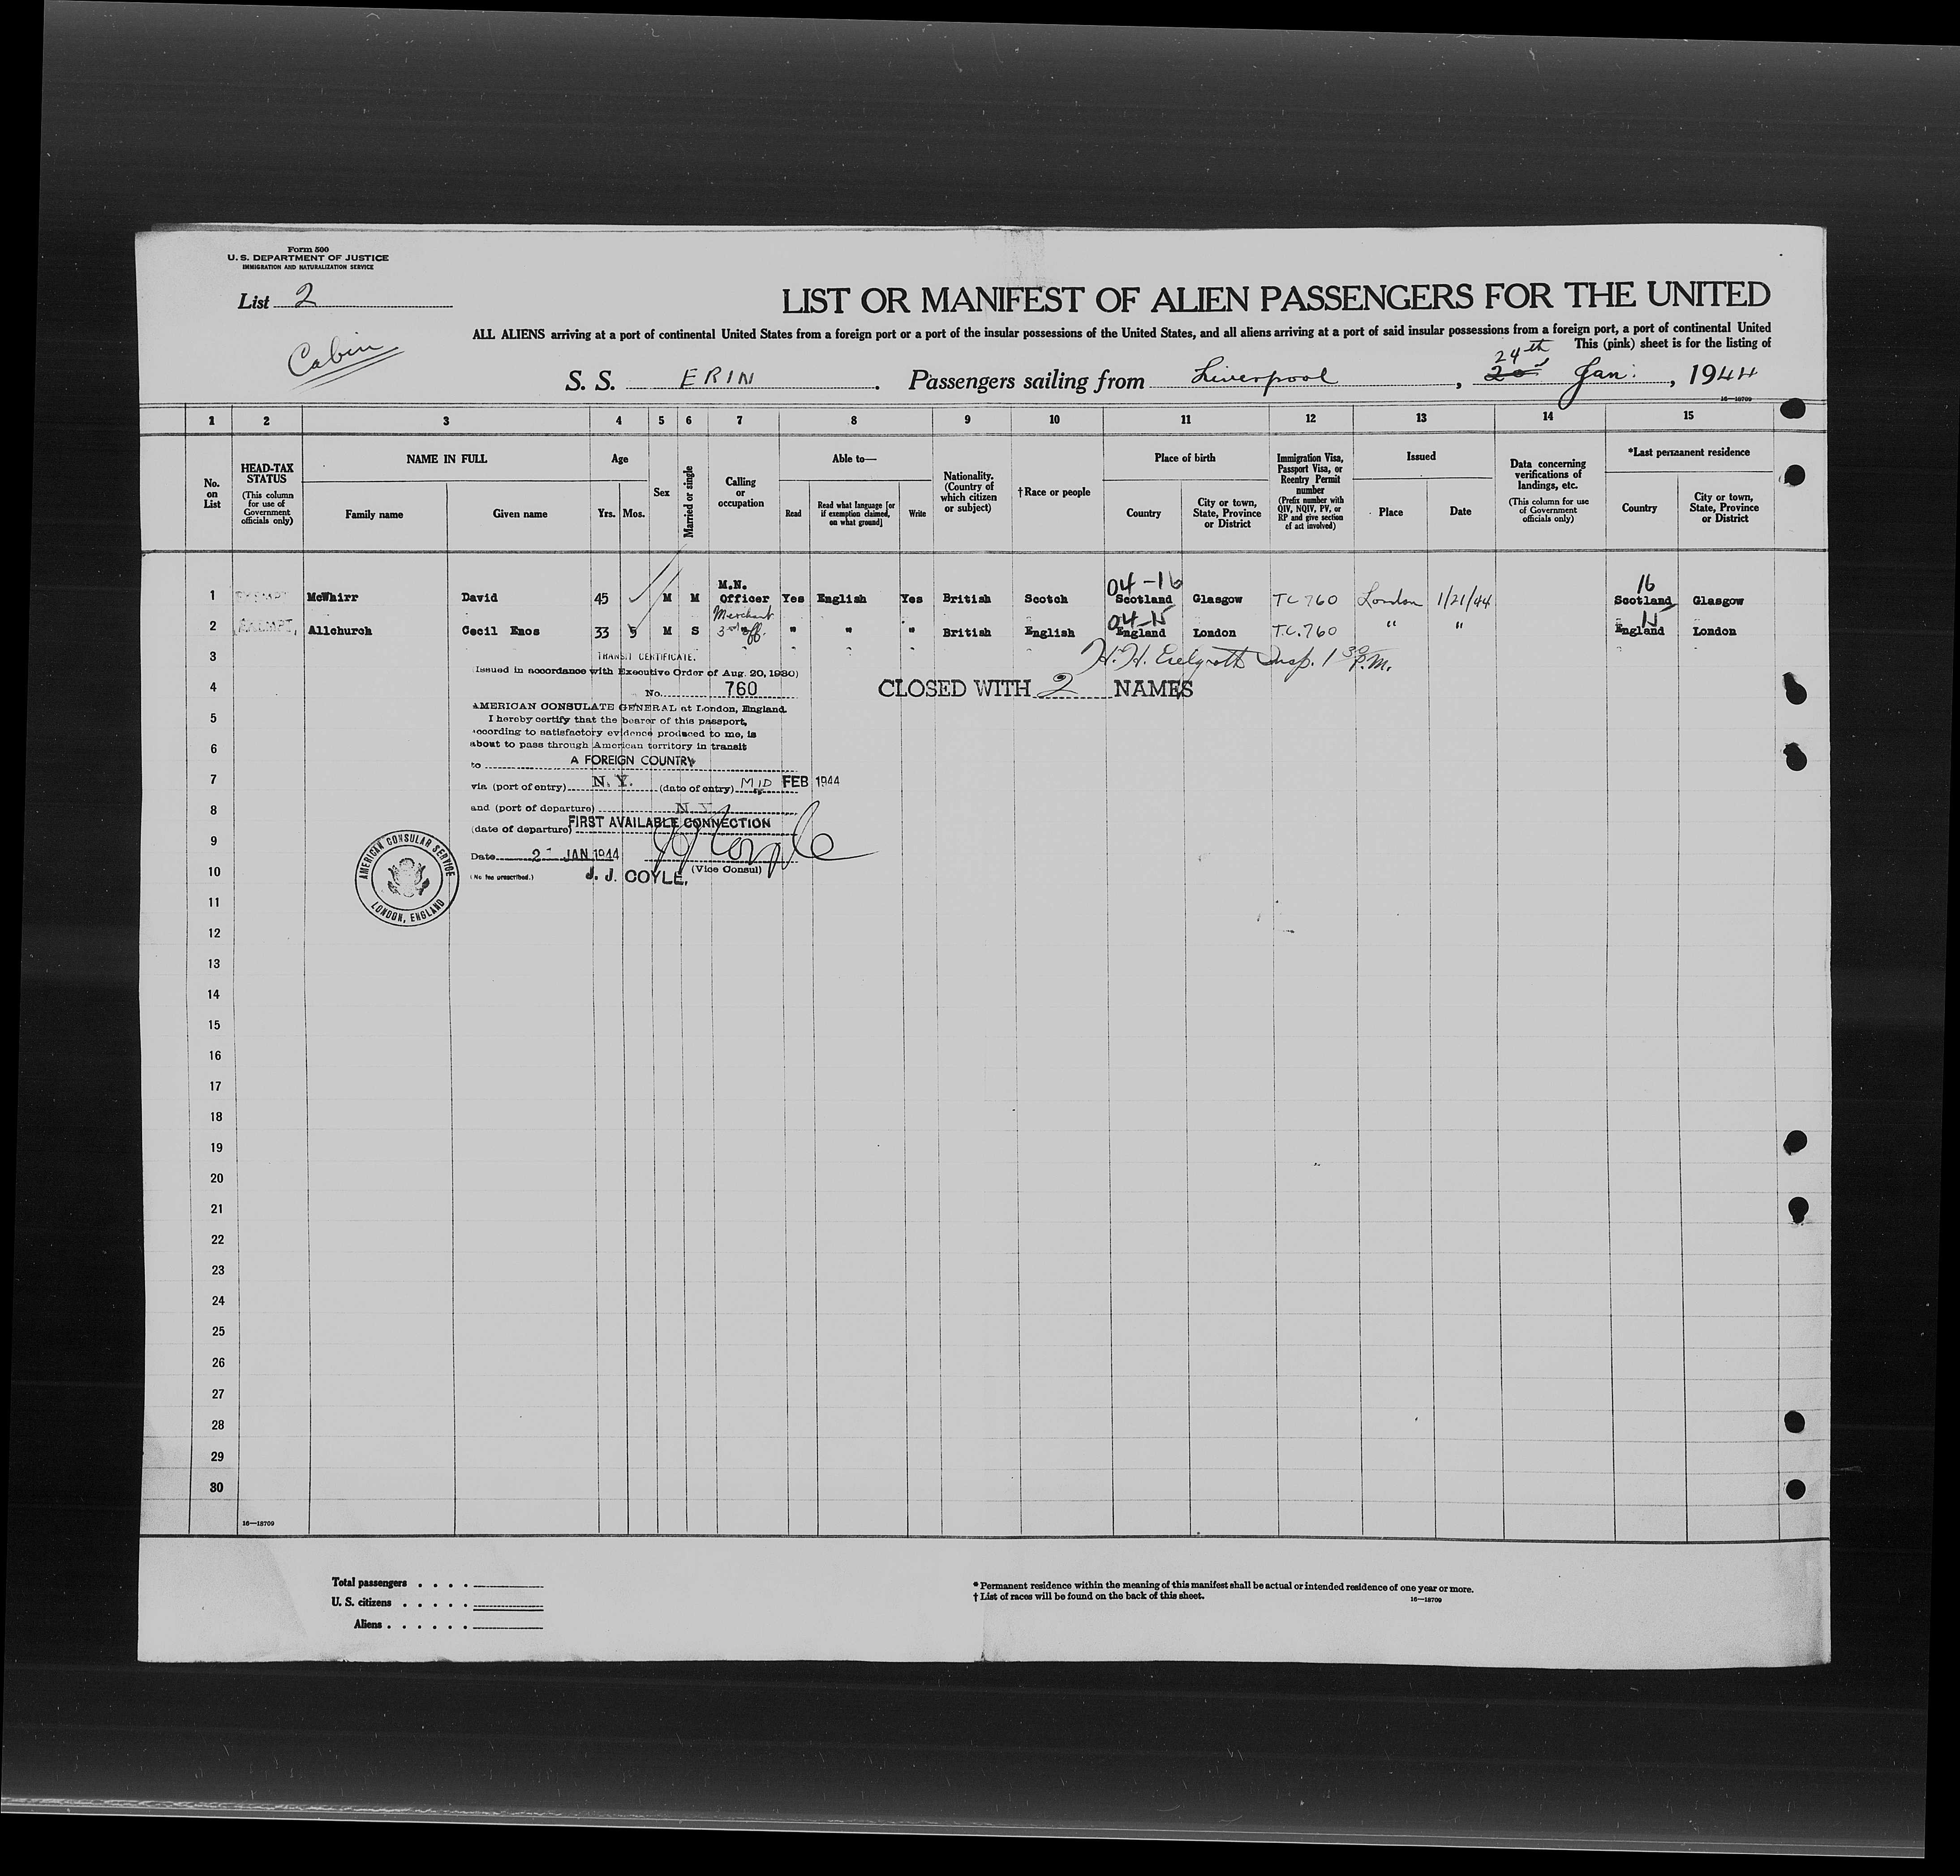 Form 500
U. S. DEPARTMENT OF JUSTICE
IMMIGRATION AND NATURALIZATION SERVICE
List 2
Cabin
LIST OR MANIFEST OF ALIEN PASSENGERS FOR THE UNITED
ALL ALIENS arriving at a port of continental United States from a foreign port or a port of the insular possessions of the United States, and all aliens arriving at a port of said insular possessions from a foreign port, a port of continental United
This (pink) sheet is for the listing of
S. S. ERIN. Passengers sailing from Liverpool, 24th Jan:, 1944
16—18709
1 2 3 4 5 6 7 8 9 10 11 12 13 14 15
No. on List
HEAD-TAX STATUS
(This column for use of Government officials only)
NAME IN FULL
Family name
Given name
Age
Yrs. Mos.
Sex
Married or single
Calling or occupation
Able to—
Read
Read what language [or if exemption claimed, on what ground]
Write
Nationality. (Country of which citizen or subject)
†Race or people
Place of birth
Country
City or town, State, Province or District
Immigration Visa, Passport Visa, or Reentry Permit number
(Prefix number with QIV, NQIV, PV, or RP and give section of act involved)
Issued
Place
Date
Data concerning verifications of landings, etc.
(This column for use of Government officials only)
*Last permanent residence
Country
City or town, State, Province or District
M.N.
04-16
16
1 EXEMPT McWhirr David 45 M M Officer Yes English Yes British Scotch Scotland Glasgow TC 760 London 1/21/44 Scotland Glasgow
Merchant
04-15
15
2 EXEMPT Allchurch Cecil Enos 33 5 M S 3rd off. " " " British English England London T.C. 760 " " England London
3
TRANSIT CERTIFICATE.
H. H. Insp. 1 30 P.M.
(Issued in accordance with Executive Order of Aug. 20, 1930)
4
No. 760
CLOSED WITH 2 NAMES
AMERICAN CONSULATE GENERAL at London, England.
5
I hereby certify that the bearer of this passport,
according to satisfactory evidence produced to me, is
6
about to pass through American territory in transit
to A FOREIGN COUNTRY
7
via (port of entry) N. Y. (date of entry) MID FEB 1944
8
and (port of departure) N. Y.
(date of departure) FIRST AVAILABLE CONNECTION
9
Date JAN 1944
(Vice Consul)
10
(No fee prescribed.) J. J. COYLE.
AMERICAN CONSULAR SERVICE
LONDON, ENGLAND
11
12
13
14
15
16
17
18
19
20
21
22
23
24
25
26
27
28
29
30
16—18709
Total passengers . . . .
U. S. citizens . . . . .
Aliens . . . . . .
* Permanent residence within the meaning of this manifest shall be actual or intended residence of one year or more.
† List of races will be found on the back of this sheet.
16—18709